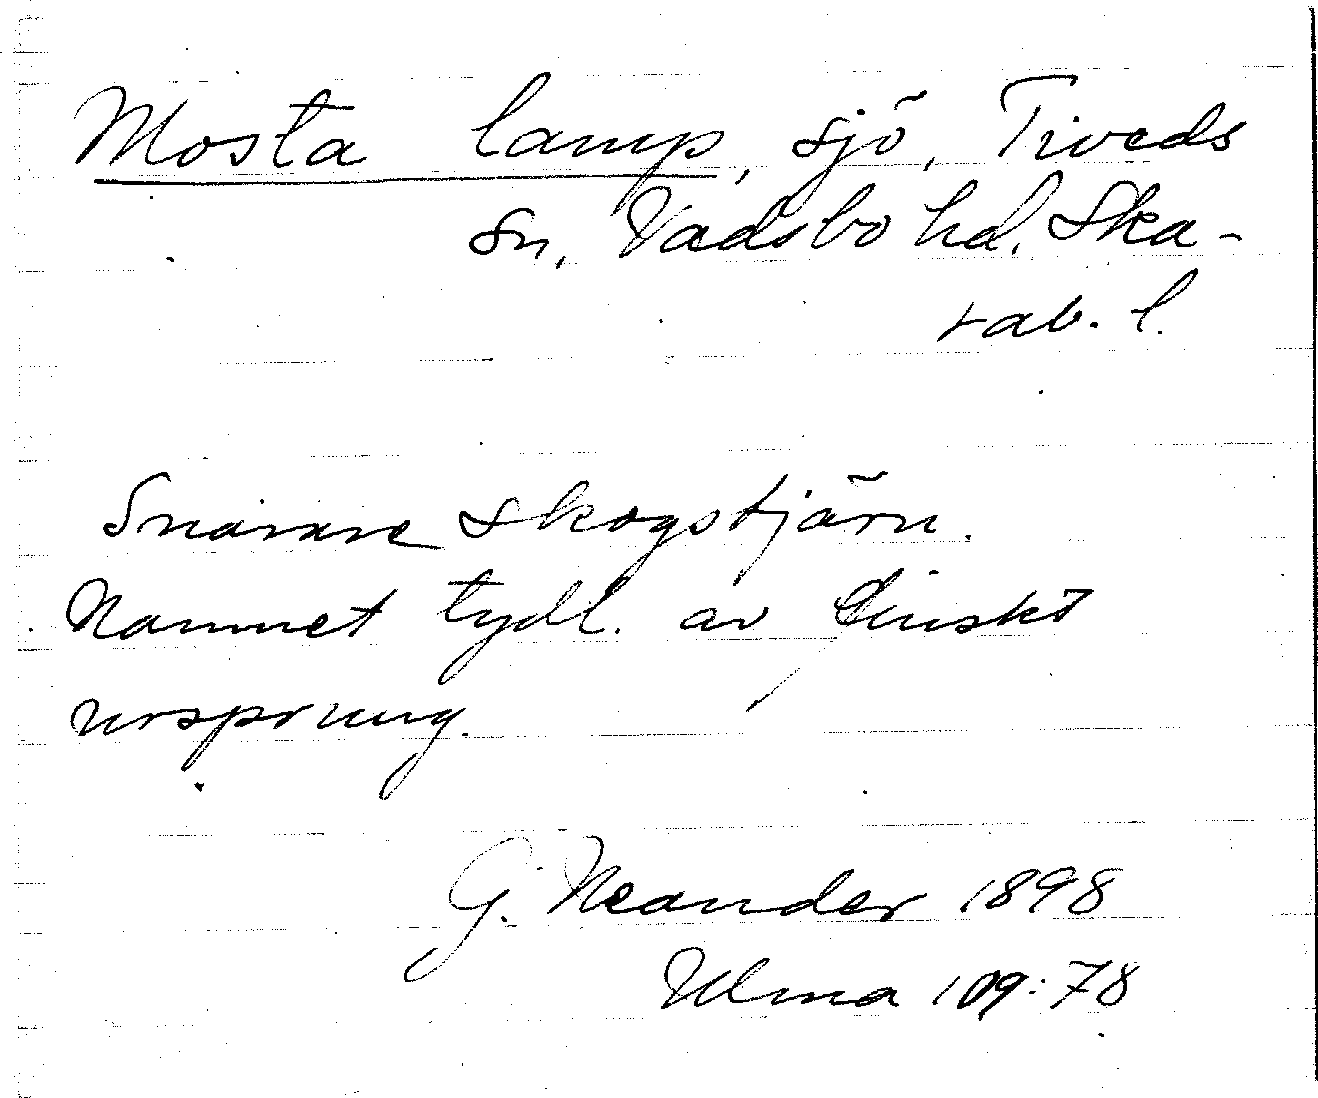 Mosta lamp, sjö, Tiveds
sn, Vadsbo hd. Ska-
rab. l.
Snarare skogstjärn.
Namnet tydl. av finskt
ursprung.
G. Neander 1898
Ulma 109:78